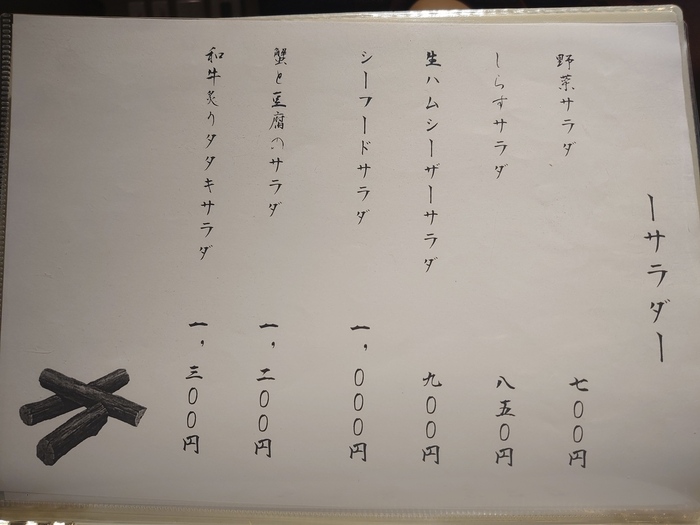 ーサラダー
野菜サラダ 七〇〇円
しらすサラダ 八五〇円
生ハムシーザーサラダ 九〇〇円
シーフードサラダ 一,〇〇〇円
蟹と豆腐のサラダ 一,二〇〇円
和牛炙りタタキサラダ 一,三〇〇円